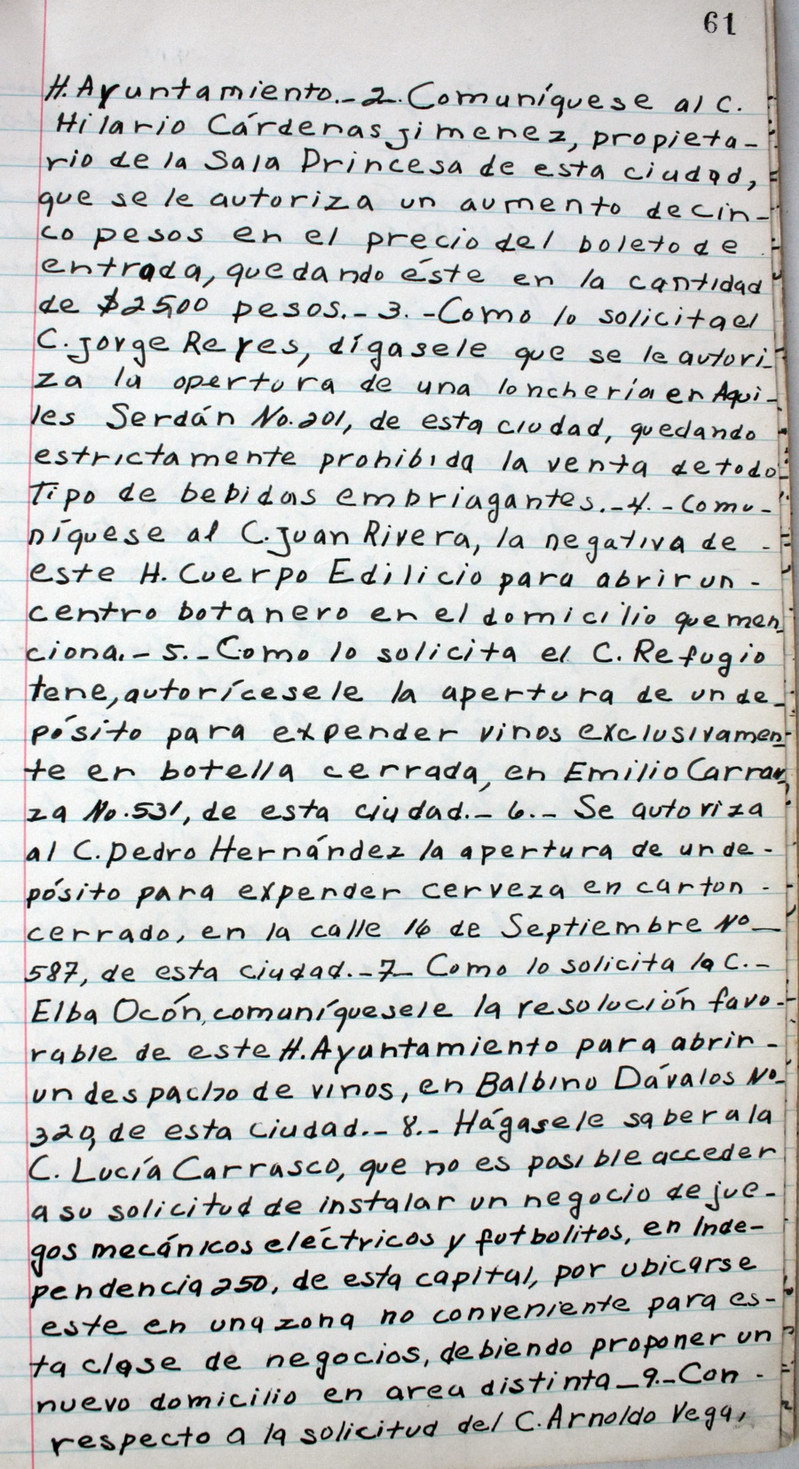 61
H. Ayuntamiento._ 2. Comuníquese al C.
Hilario Cárdenas Jimenez, propieta-
rio de la Sala Princesa de esta ciudad,
que se le autoriza un aumento de cin-
co pesos en el precio del boleto de
entrada, quedando éste en la cantidad
de $25,00 pesos._ 3. -Como lo solicita el
C. Jorge Reyes, dígasele que se le autori-
za la opertura de una lonchería en Aqui-
les Serdán No. 201, de esta ciudad, quedando
estrictamente prohibida la venta de todo
Tipo de bebidas embriagantes._4.-Comu-
níquese al C. Juan Rivera, la negativa de -
este H. Cuerpo Edilicio para abrir un -
centro botanero en el domicilio que men_
ciona._ 5._ Como lo solicita el C. Refugio
tene, autorícesele la apertura de un de_
pósito para expender vinos exclusivamen-
te en botella cerrada, en Emilio Carran_
za No. 531, de esta ciudad._ 6._ Se autoriza
al C. Pedro Hernández la apertura de un de-
pósito para expender cerveza en carton -
cerrado, en la calle 16 de Septiembre No_
587, de esta ciudad._7_ Como lo solicita la C. -
Elba Ocón, comuníquesele la resolución favo-
rable de este H. Ayuntamiento para abrir -
un despacho de vinos, en Balbino Dávalos No_
320, de esta ciudad._ 8._ Hágasele saber a la
C. Lucía Carrasco, que no es posible acceder
a su solicitud de instalar un negocio de jue-
gos mecánicos eléctricos y futbolitos, en Inde-
pendencia 250, de esta capital, por ubicarse
este en una zona no conveniente para es-
ta clase de negocios, debiendo proponer un
nuevo domicilio en area distinta_9._Con -
respecto a la solicitud del C. Arnoldo Vega,